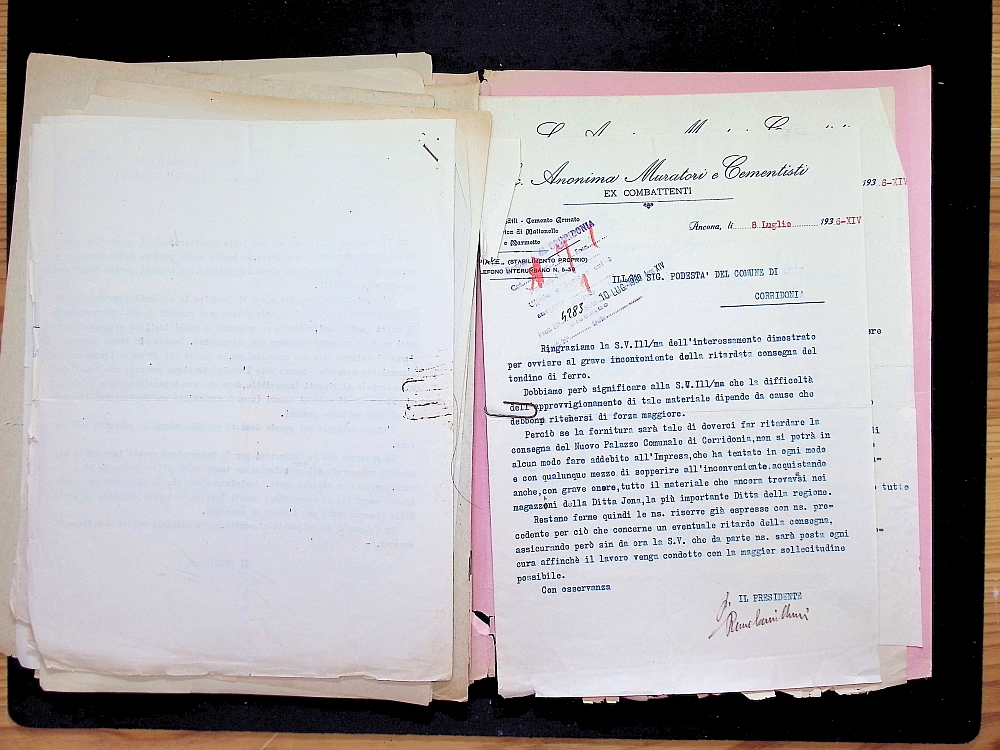 Anonima Muratori e Cementisti
EX COMBATTENTI
193 6-XIV
Edili - Cemento Armato
ica di Mattonelle
e Marmette
(STABILIMENTO PROPRIO)
LEFONO INTERURBANO N. 5-36
Ancona, li 8 Luglio 1936-XIV
CORRIDONIA
4283
10 LUG. 1936 Ann. XIV
ILL/MO SIG. PODESTA' DEL COMUNE DI
CORRIDONI'
Ringraziamo la S.V.Ill/ma dell'interessamento dimostrato
per ovviare al grave inconteniente della ritardata consegna del
tondino di ferro.
Dobbiamo però significare alla S.V.Ill/ma che la difficoltà
dell'approvvigionamento di tale materiale dipende da cause che
debbono ritenersi di forza maggiore.
Perciò se la fornitura sarà tale di doverci far ritardare la
consegna del Nuovo Palazzo Comunale di Corridonia,non si potrà in
alcun modo fare addebito all'Impresa,che ha tentato in ogni modo
e con qualunque mezzo di sopperire all'inconveniente.acquistando
anche,con grave onere,tutto il materiale che ancora trovavasi nei
magazzeni della Ditta Jona,la più importante Ditta della regione.
Restano ferme quindi le ns. riserve già espresse con ns. pre-
cedente per ciò che concerne un eventuale ritardo della consegna,
assicurando però sin da ora la S.V. che da parte ns. sarà posta ogni
cura affinchè il lavoro venga condotto con la maggior sollecitudine
possibile.
Con osservanza
IL PRESIDENTE
ere
di
tutto